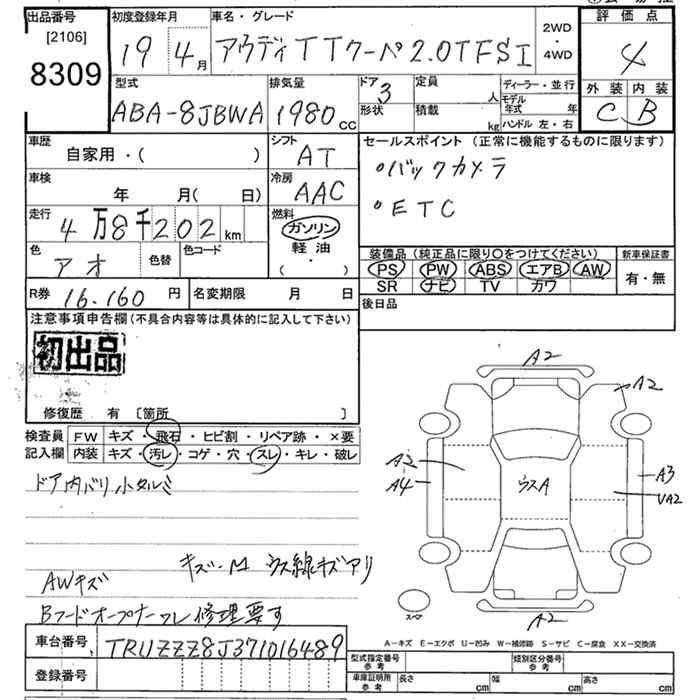 出品番号
[2106]
8309
初度登録年月
19 4月
車名・グレード
アウディTTクーペ2.0TFSI
2WD
・
4WD
評価点
4
外装 内装
C B
型式
ABA-8JBWA
排気量
1980cc
ドア
3
形状
定員
人
積載
kg
ディーラー・並行
モデル年式 年
ハンドル 左・右
車歴
自家用・( )
シフト
AT
車検
年 月( 日)
冷房
AAC
走行
4万8千202km
燃料
ガソリン
軽油
( ・ )
色
アオ
色替
色コード
R券 16.160円
名変期限 月 日
セールスポイント (正常に機能するものに限ります)
・バックカメラ
・ETC
装備品 (純正品に限り○をつけてください)
PS PW ABS エアB AW
SR ナビ TV カワ
新車保証書
有・無
後日品
注意事項申告欄(不具合内容等は具体的に記入して下さい)
初出品
修復歴 有 [箇所 ]
検査員記入欄
FW キズ・飛石・ヒビ割・リペア跡・×要
内装 キズ・汚レ・コゲ・穴・スレ・キレ・破レ
ドア内バリ小タルミ
キズ・M ウス線キズアリ
AWキズ
Bフードオープナーフレ修理要す
A2
A2
A2
A4
ウスA
A3
UA2
スペア
A2
A-キズ E-エクボ U-凹み W-補修跡 S-サビ C-腐食 XX-交換済
車台番号 TRUZZZ8J371016489
登録番号
型式指定番号 参考
類別区分番号 参考
車庫証明用 参考
長さ cm
幅 cm
高さ cm